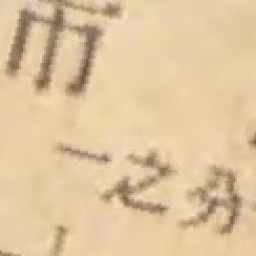 市
一之分